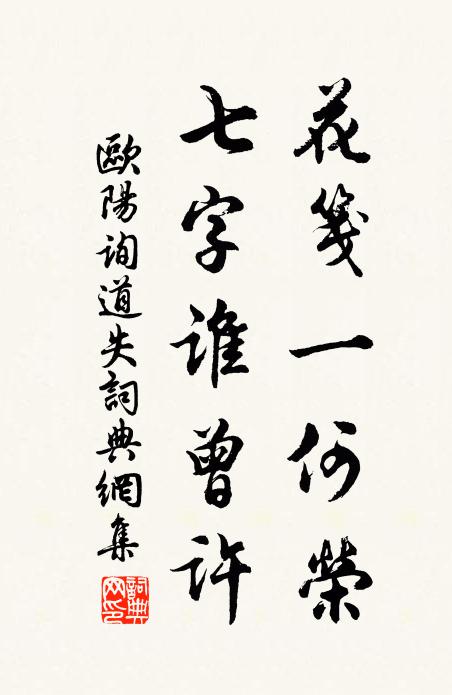 花箋一何榮
七字誰曾許
歐陽詢道失詞典網集
詞典網印